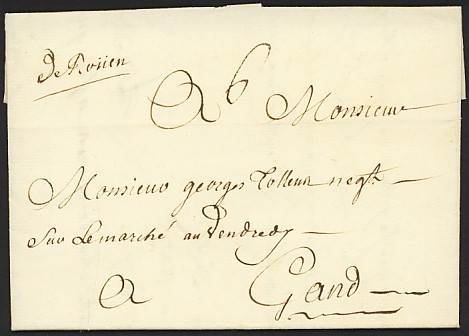 De Roüen
A 6 Monsieur
Monsieur georges negt.
Sur Le marché au Vendredy
A Gand